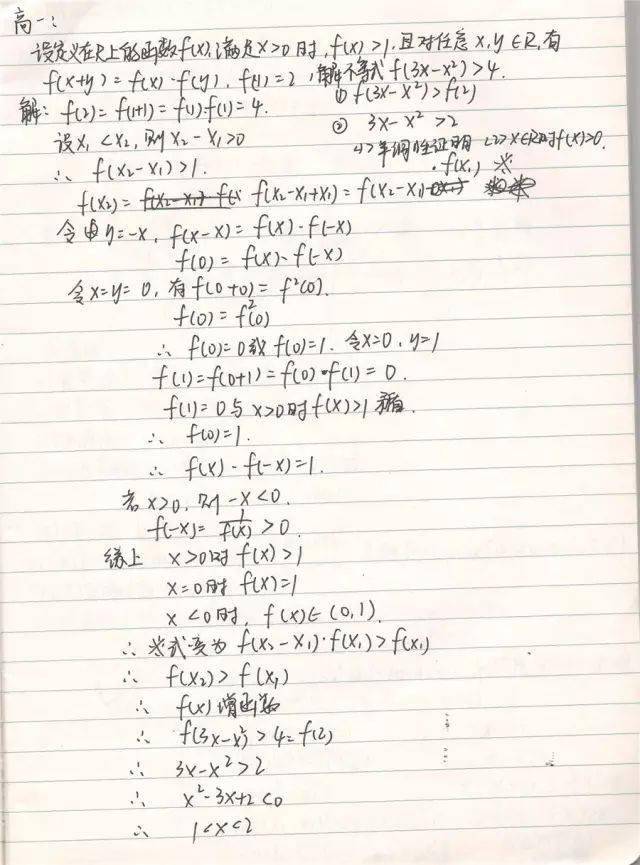 高一:
设定义在R上的函数f(x),满足x>0时,f(x)>1,且对任意x,y∈R,有
f(x+y)=f(x)·f(y),f(1)=2,解不等式f(3x-x²)>4.
解:f(2)=f(1+1)=f(1)·f(1)=4.
① f(3x-x²)>f(2)
设x₁<x₂,则x₂-x₁>0
② 3x-x²>2
<1>单调性证明 <2>x∈R时f(x)>0.
∴ f(x₂-x₁)>1.
f(x₂)=f(x₂-x₁+x₁)=f(x₂-x₁)·f(x₁) ※
令y=-x,f(x-x)=f(x)·f(-x)
f(0)=f(x)·f(-x)
令x=y=0,有f(0+0)=f²(0).
f(0)=f²(0)
∴ f(0)=0或f(0)=1.令x=0,y=1
f(1)=f(0+1)=f(0)·f(1)=0.
f(1)=0与x>0时f(x)>1矛盾.
∴ f(0)=1.
∴ f(x)·f(-x)=1.
若x>0,则-x<0.
f(-x)=1/f(x)>0.
综上 x>0时f(x)>1
x=0时f(x)=1
x<0时,f(x)∈(0,1).
∴ ※式变为f(x₂-x₁)·f(x₁)>f(x₁)
∴ f(x₂)>f(x₁)
∴ f(x)增函数
∴ f(3x-x²)>4=f(2)
∴ 3x-x²>2
∴ x²-3x+2<0
∴ 1<x<2